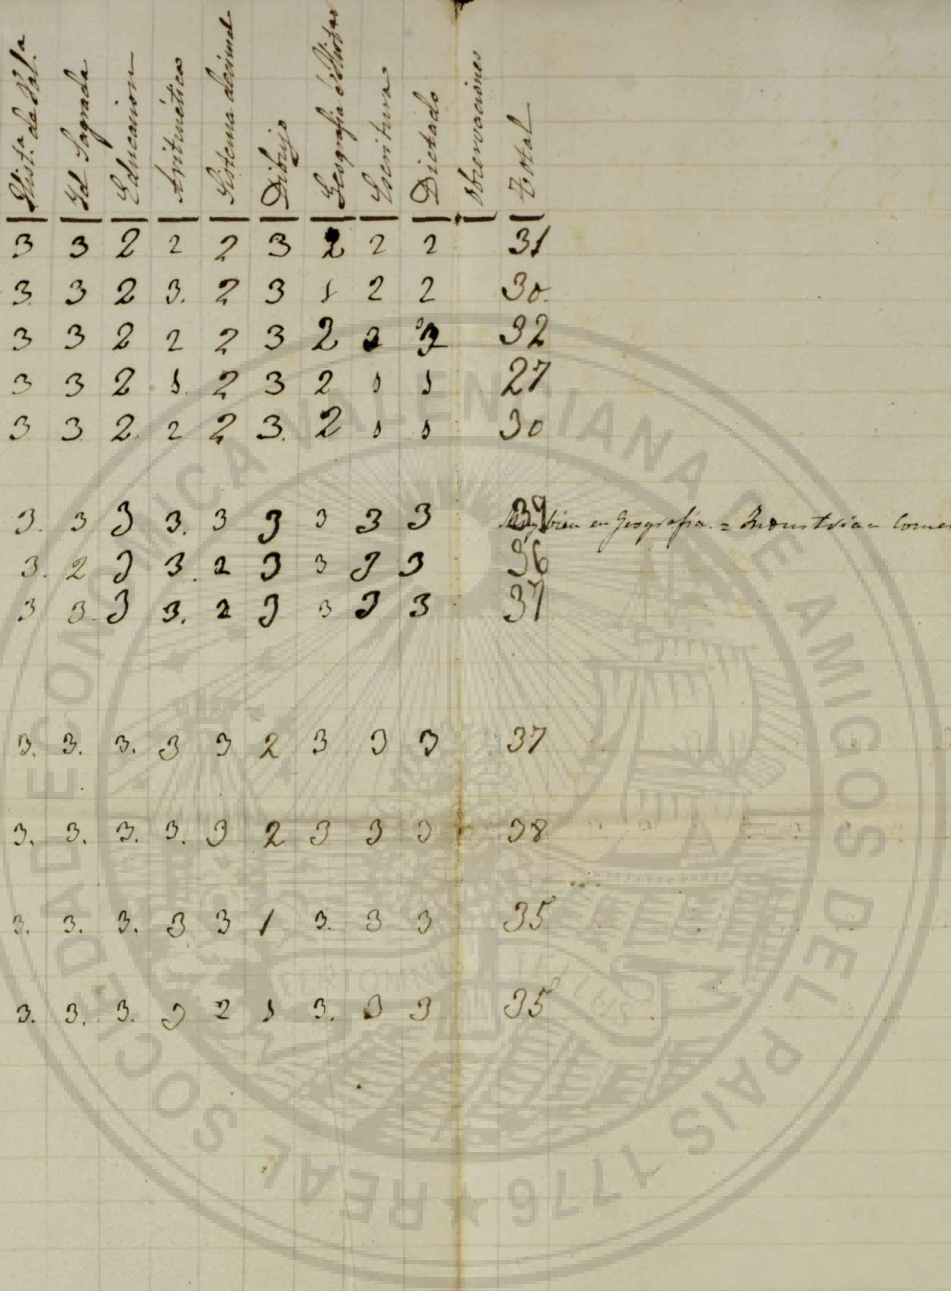 Hist.ª de Val.ª Id Sagrada Educacion Aritmética Sistema decimal Dibujo Geografia é Escritura Dictado Observaciones Total
3 3 2 2 2 3 2 2 2 31
3. 3 2 3. 2 3 1 2 2 30.
3 3 2 2 2 3 2 2 32
3 3 2 1. 2 3 2 1 1 27
3 3 2. 2 2 3. 2 1 1 30
3. 3 3 3. 3 3 3 3 3 39 bien en Geografia. =
3. 2 3 3. 2 3 3 3 3 36
3 3. 3 3. 2 3 3 3 3 37
3. 3. 3. 3 3 2 3 3 3 37
3. 3. 3. 3. 3 2 3 3 3 38
3. 3. 3. 3 3 1 3. 3 3 35
3. 3. 3. 3 2 1 3. 3 3 35
REAL SOCIEDAD ECONÓMICA VALENCIANA DE AMIGOS DEL PAIS 1776